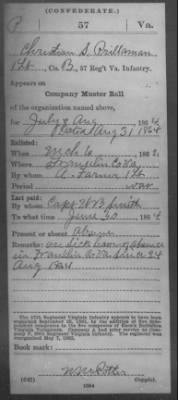 (CONFEDERATE.)
P 57 Va.
Christian S. Prillaman
Pvt, Co. B, 57 Reg't Va. Infantry.
Appears on
Company Muster Roll
of the organization named above,
for July & Aug, 1864
Dated Aug 31 1864
Enlisted:
When Mch 6, 186
Where Franklin Co Va
By whom A. Farmer
Period war
Last paid:
By whom Capt W B Smith
To what time June 30, 1864
Present or absent Absent
Remarks: on sick leave of absence
in Franklin Co Va since 24
Aug 1864
The 57th Regiment Virginia Infantry appears to have been
organized September 23, 1861, by the addition of five
companies to the five companies of Keen's Battalion
Virginia Volunteers.
reorganized May 7, 1862.
Book mark:
(642) Copyist.